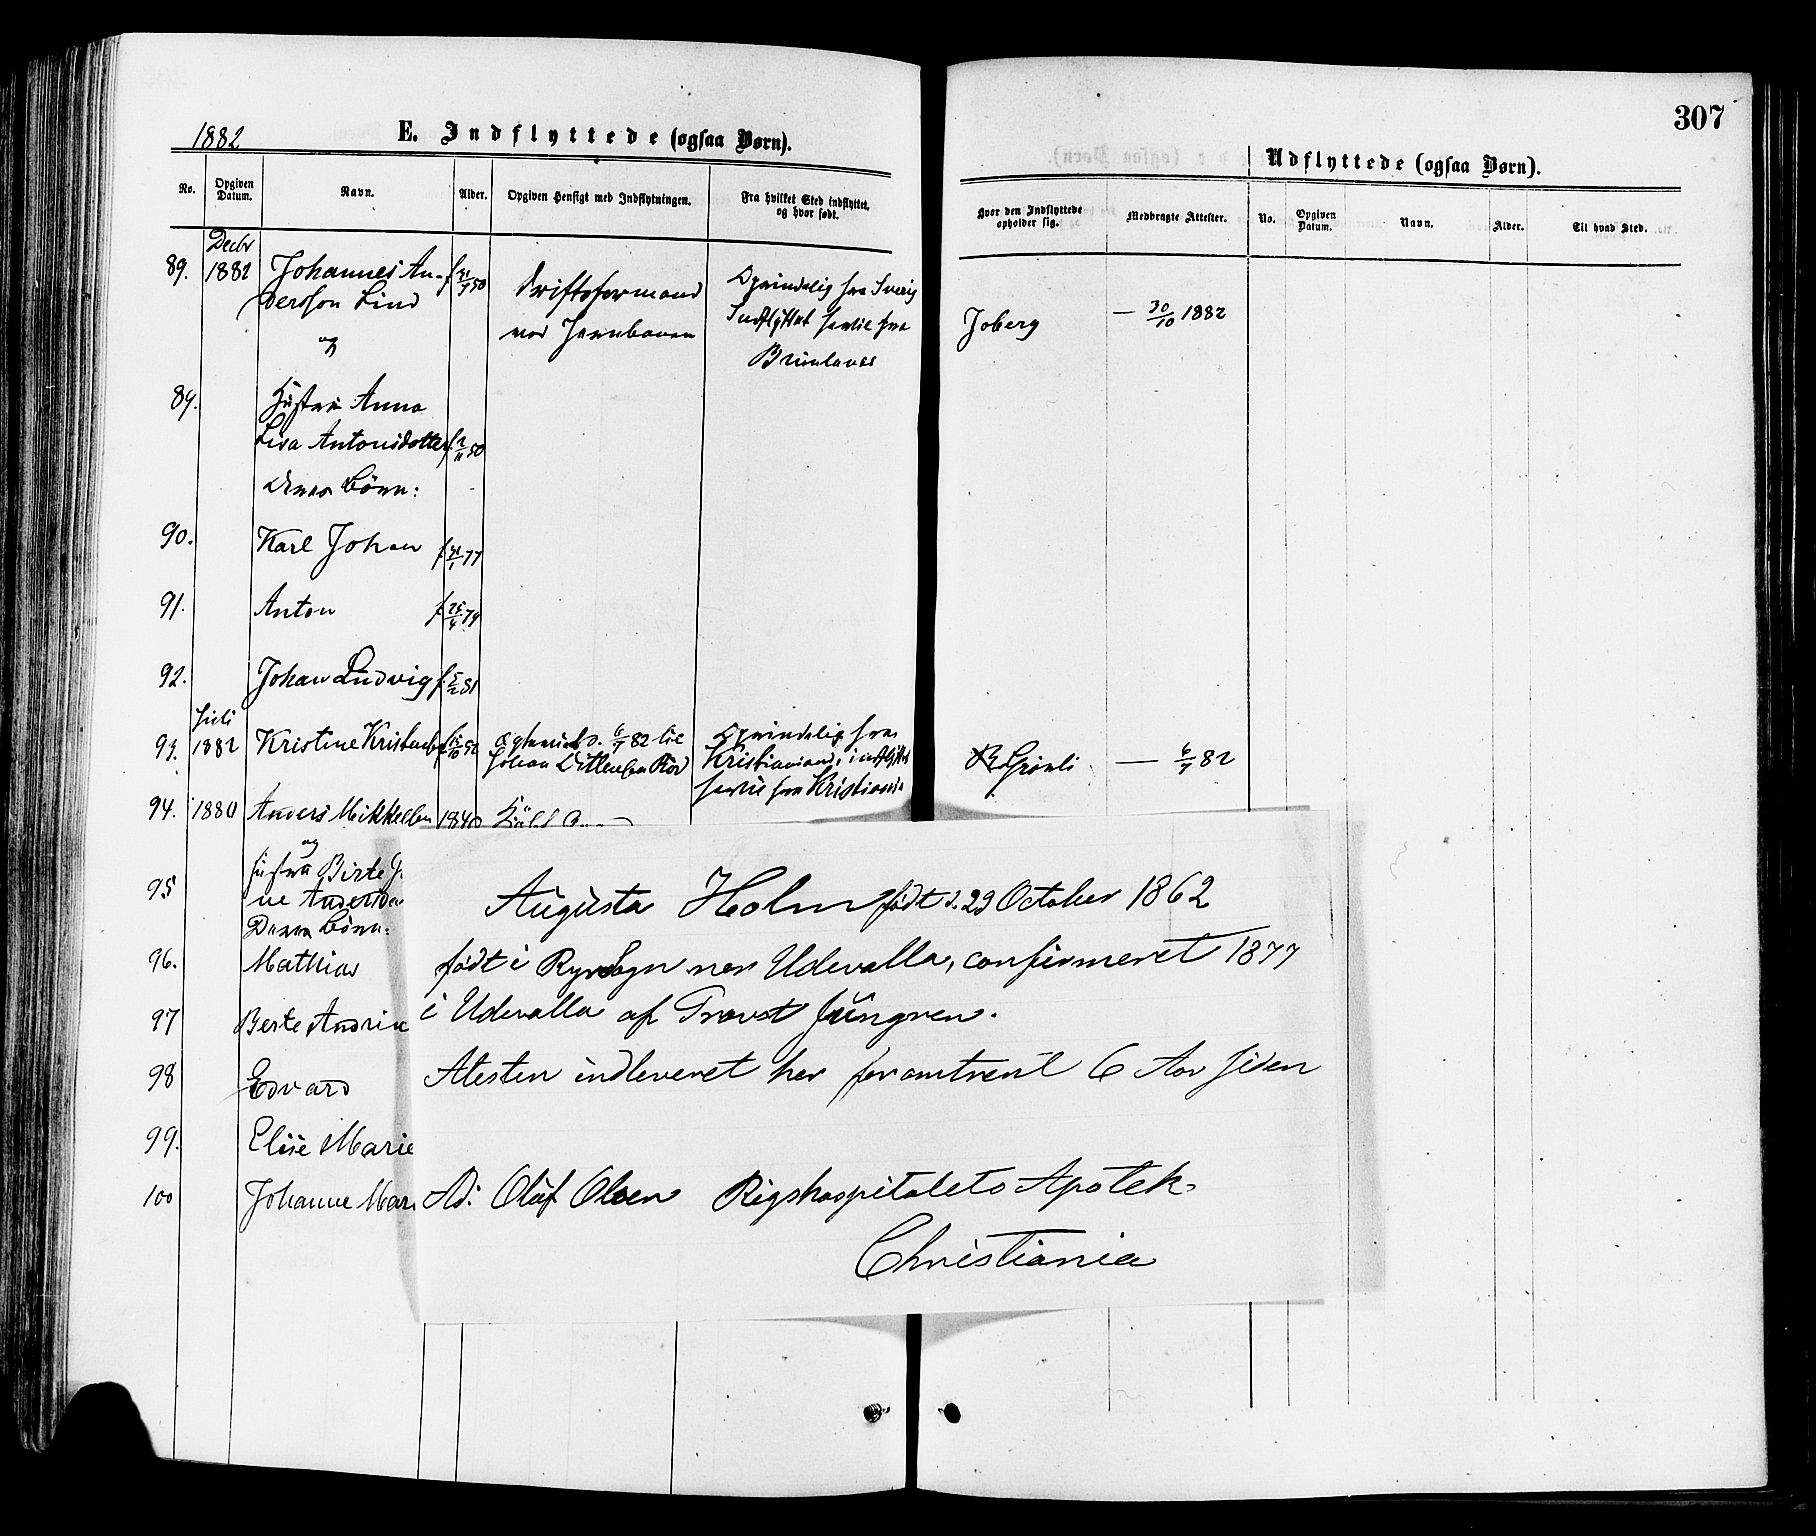 307
1882
E. Indflyttede (ogsaa Børn).
Udflyttede (ogsaa Børn).
No. Opgiven Datum. Navn. Alder. Opgiven Hensigt med Indflytningen. Fra hvilket Sted indflyttet, og hvor født.
Hvor den Indflyttede opholder sig. Medbragte Attester. No. Opgiven Datum. Navn. Alder. Til hvad Sted.
Decbr
89. 1882 Johannes An-
dersson Lind
og
Driftsformand
ved Jernbanen
Oprindelig fra Sverig
Indflyttet hertil fra
Brunlanes
Joberg — 30/10 1882
89. Hustru Anna
Lisa Antonsdotter f. 2/11 50
deres Børn:
90. Karl Johan f. 31/1 77
91. Anton f. 25/4 79
92. Johan Ludvig f. 5/2 81
Juli
93. 1882 Kristine
6/7 82 til
Johan
oprindelig fra
Kristiansand, indflyttet
hertil fra Kristiania
Grønli — 6/7 82
94. 1880 Anders Mikkelsen 1840
og
95 Hustru Birte
ne Anders
Deres Børn:
96. Mathias
97 Berte Andrin
98 Edvard
99. Elise Marie
100 Johanne Mar
Augusta Holm født d. 29 October 1862
født i Ryr Sogn ner Udevalla, confirmeret 1877
i Udevalla af Provst Jüngren.
Atesten indleveret her for omtrent 6 Aar siden
Ad: Olaf Olsen Rigshospitalets Apotek
Christiania